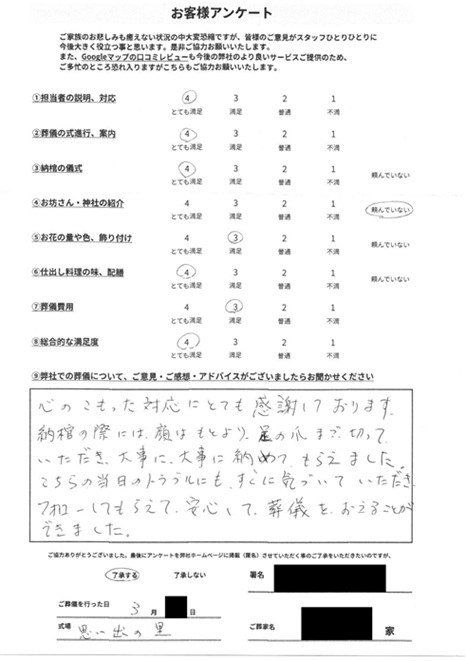 お客様アンケート
ご家族のお悲しみも癒えない状況の中大変恐縮ですが、皆様のご意見がスタッフひとりひとりに
今後大きく役立つ事と思います。是非ご協力お願いいたします。
また、Googleマップの口コミレビューも今後の弊社のより良いサービスご提供のため、
ご多忙のところ恐れ入りますがこちらもご協力お願いいたします。
①担当者の説明、対応 4 3 2 1
とても満足 満足 普通 不満
②葬儀の式進行、案内 4 3 2 1
とても満足 満足 普通 不満
③納棺の儀式 4 3 2 1 頼んでいない
とても満足 満足 普通 不満
④お坊さん・神社の紹介 4 3 2 1 頼んでいない
とても満足 満足 普通 不満
⑤お花の量や色、飾り付け 4 3 2 1 頼んでいない
とても満足 満足 普通 不満
⑥仕出し料理の味、配膳 4 3 2 1 頼んでいない
とても満足 満足 普通 不満
⑦葬儀費用 4 3 2 1
とても満足 満足 普通 不満
⑧総合的な満足度 4 3 2 1
とても満足 満足 普通 不満
⑨弊社での葬儀について、ご意見・ご感想・アドバイスがございましたらお聞かせください
心のこもった対応にとても感謝しております。
納棺の際には、顔はもとより、足の爪まで切って
いただき、大事に、大事に納めてもらえました。
こちらの当日のトラブルにも、すぐに気づいていただき、
フォローしてもらえて、安心して、葬儀を、おえることが
できました。
ご協力ありがとうございました。最後にアンケートを弊社ホームページに掲載（匿名）させていただく事のご了承をいただきたいのですが、
了承する 了承しない 署名
ご葬儀を行った日 3 月 日
式場 思い出の里 ご葬家名 家